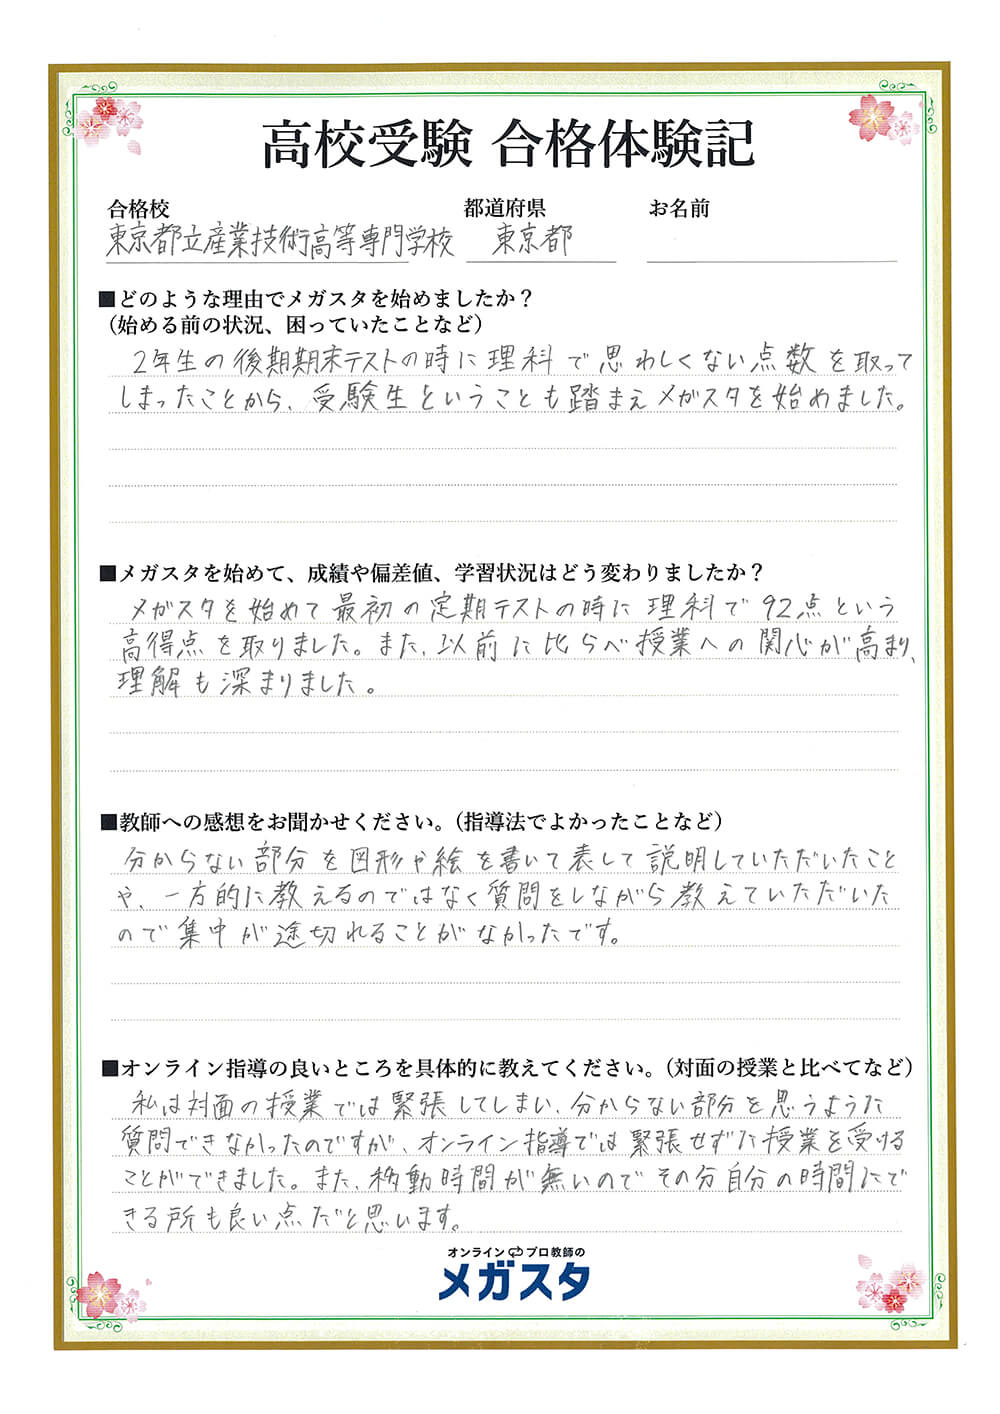 高校受験 合格体験記
合格校 都道府県 お名前
東京都立産業技術高等専門学校 東京都
■どのような理由でメガスタを始めましたか？
（始める前の状況、困っていたことなど）
2年生の後期期末テストの時に理科で思わしくない点数を取って
しまったことから、受験生ということも踏まえメガスタを始めました。
■メガスタを始めて、成績や偏差値、学習状況はどう変わりましたか？
メガスタを始めて最初の定期テストの時に理科で92点という
高得点を取りました。また、以前に比らべ授業への関心が高まり、
理解も深まりました。
■教師への感想をお聞かせください。（指導法でよかったことなど）
分からない部分を図形や絵を書いて表して説明していただいたこと
や、一方的に教えるのではなく質問をしながら教えていただいた
ので集中が途切れることがなかったです。
■オンライン指導の良いところを具体的に教えてください。（対面の授業と比べてなど）
私は対面の授業では緊張してしまい、分からない部分を思うような
質問できなかったのですが、オンライン指導では緊張せずに授業を受ける
ことができました。また、移動時間が無いのでその分自分の時間にで
きる所も良い点だと思います。
オンライン プロ教師の
メガスタ